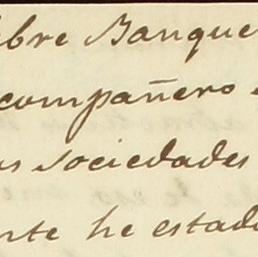 ebre Banque
compañero
as sociedades
nte he estad